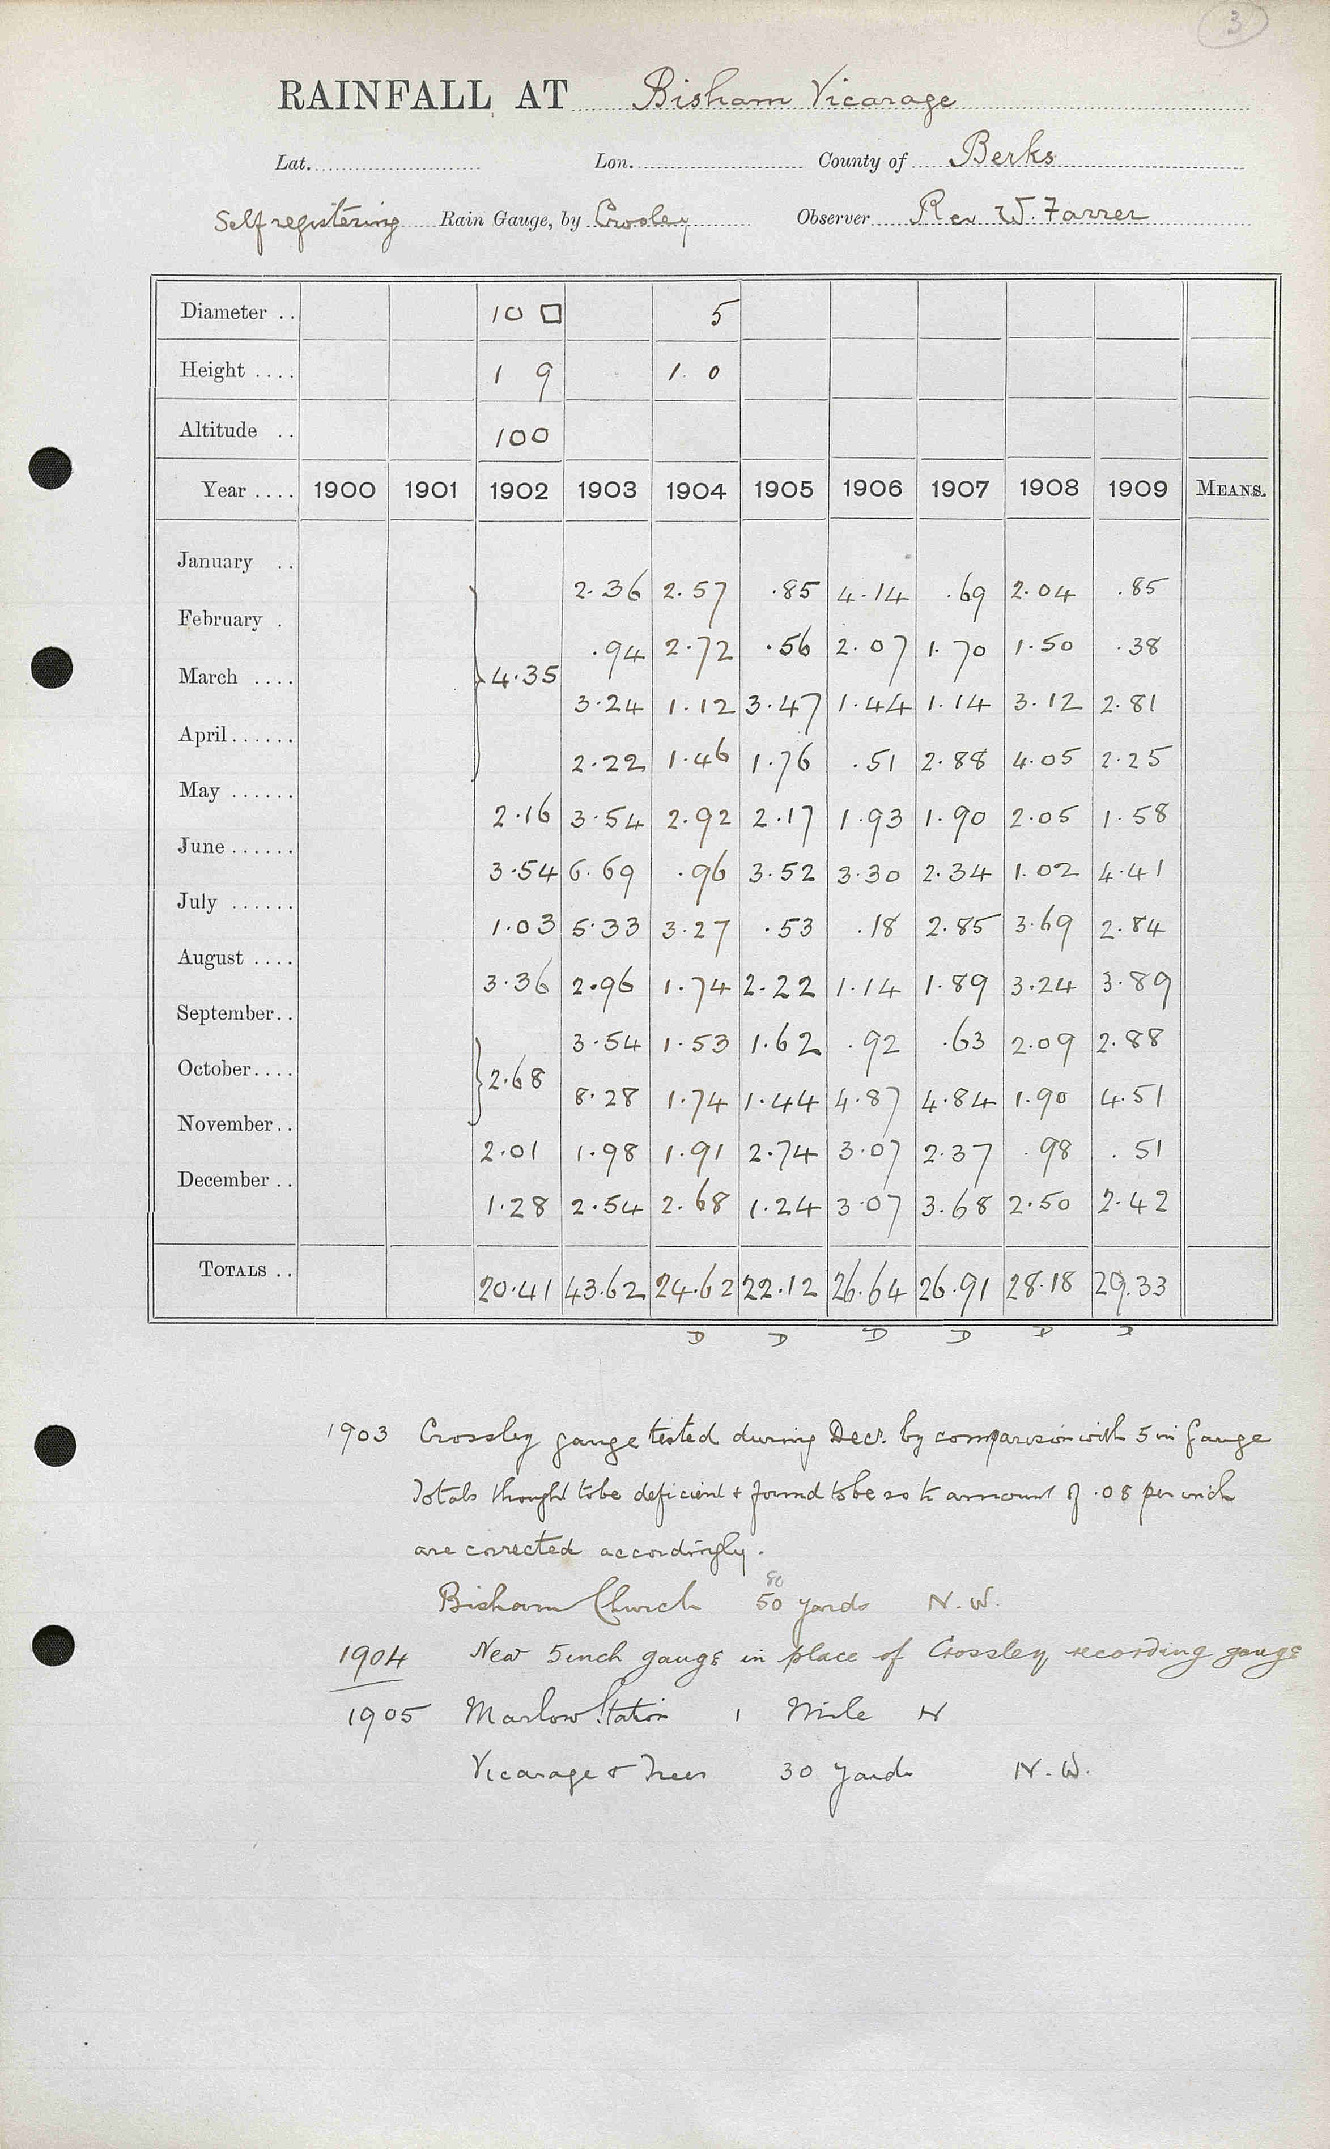 3
RAINFALL AT Bisham Vicarage
Lat. Lon. County of Berks
Self registering Rain Gauge, by Crosley Observer Rev W. Farrer
Diameter .. 10 □ 5
Height .... 1 9 1. 0
Altitude .. 100
Year .... 1900 1901 1902 1903 1904 1905 1906 1907 1908 1909 MEANS.
January .. 2.36 2.57 .85 4.14 .69 2.04 .85
February . .94 2.72 .56 2.07 1.70 1.50 .38
March .... 4.35 3.24 1.12 3.47 1.44 1.14 3.12 2.81
April...... 2.22 1.46 1.76 .51 2.88 4.05 2.25
May ...... 2.16 3.54 2.92 2.17 1.93 1.90 2.05 1.58
June ...... 3.54 6.69 .96 3.52 3.30 2.34 1.02 4.41
July ...... 1.03 5.33 3.27 .53 .18 2.85 3.69 2.84
August .... 3.36 2.96 1.74 2.22 1.14 1.89 3.24 3.89
September.. 3.54 1.53 1.62 .92 .63 2.09 2.88
October.... 2.68 8.28 1.74 1.44 4.87 4.84 1.90 4.51
November.. 2.01 1.98 1.91 2.74 3.07 2.37 .98 .51
December .. 1.28 2.54 2.68 1.24 3.07 3.68 2.50 2.42
TOTALS .. 20.41 43.62 24.62 22.12 26.64 26.91 28.18 29.33
D D D D D D
1903 Crossley gauge tested during Decr. by comparison with 5 in Gauge
Totals thought to be deficient & found to be so to amount of .08 per inch
are corrected accordingly.
80
Bisham Church 50 yards N.W.
1904 New 5 inch gauge in place of Crossley recording gauge
1905 Marlow Station 1 Mile N
Vicarage & Trees 30 yards N.W.